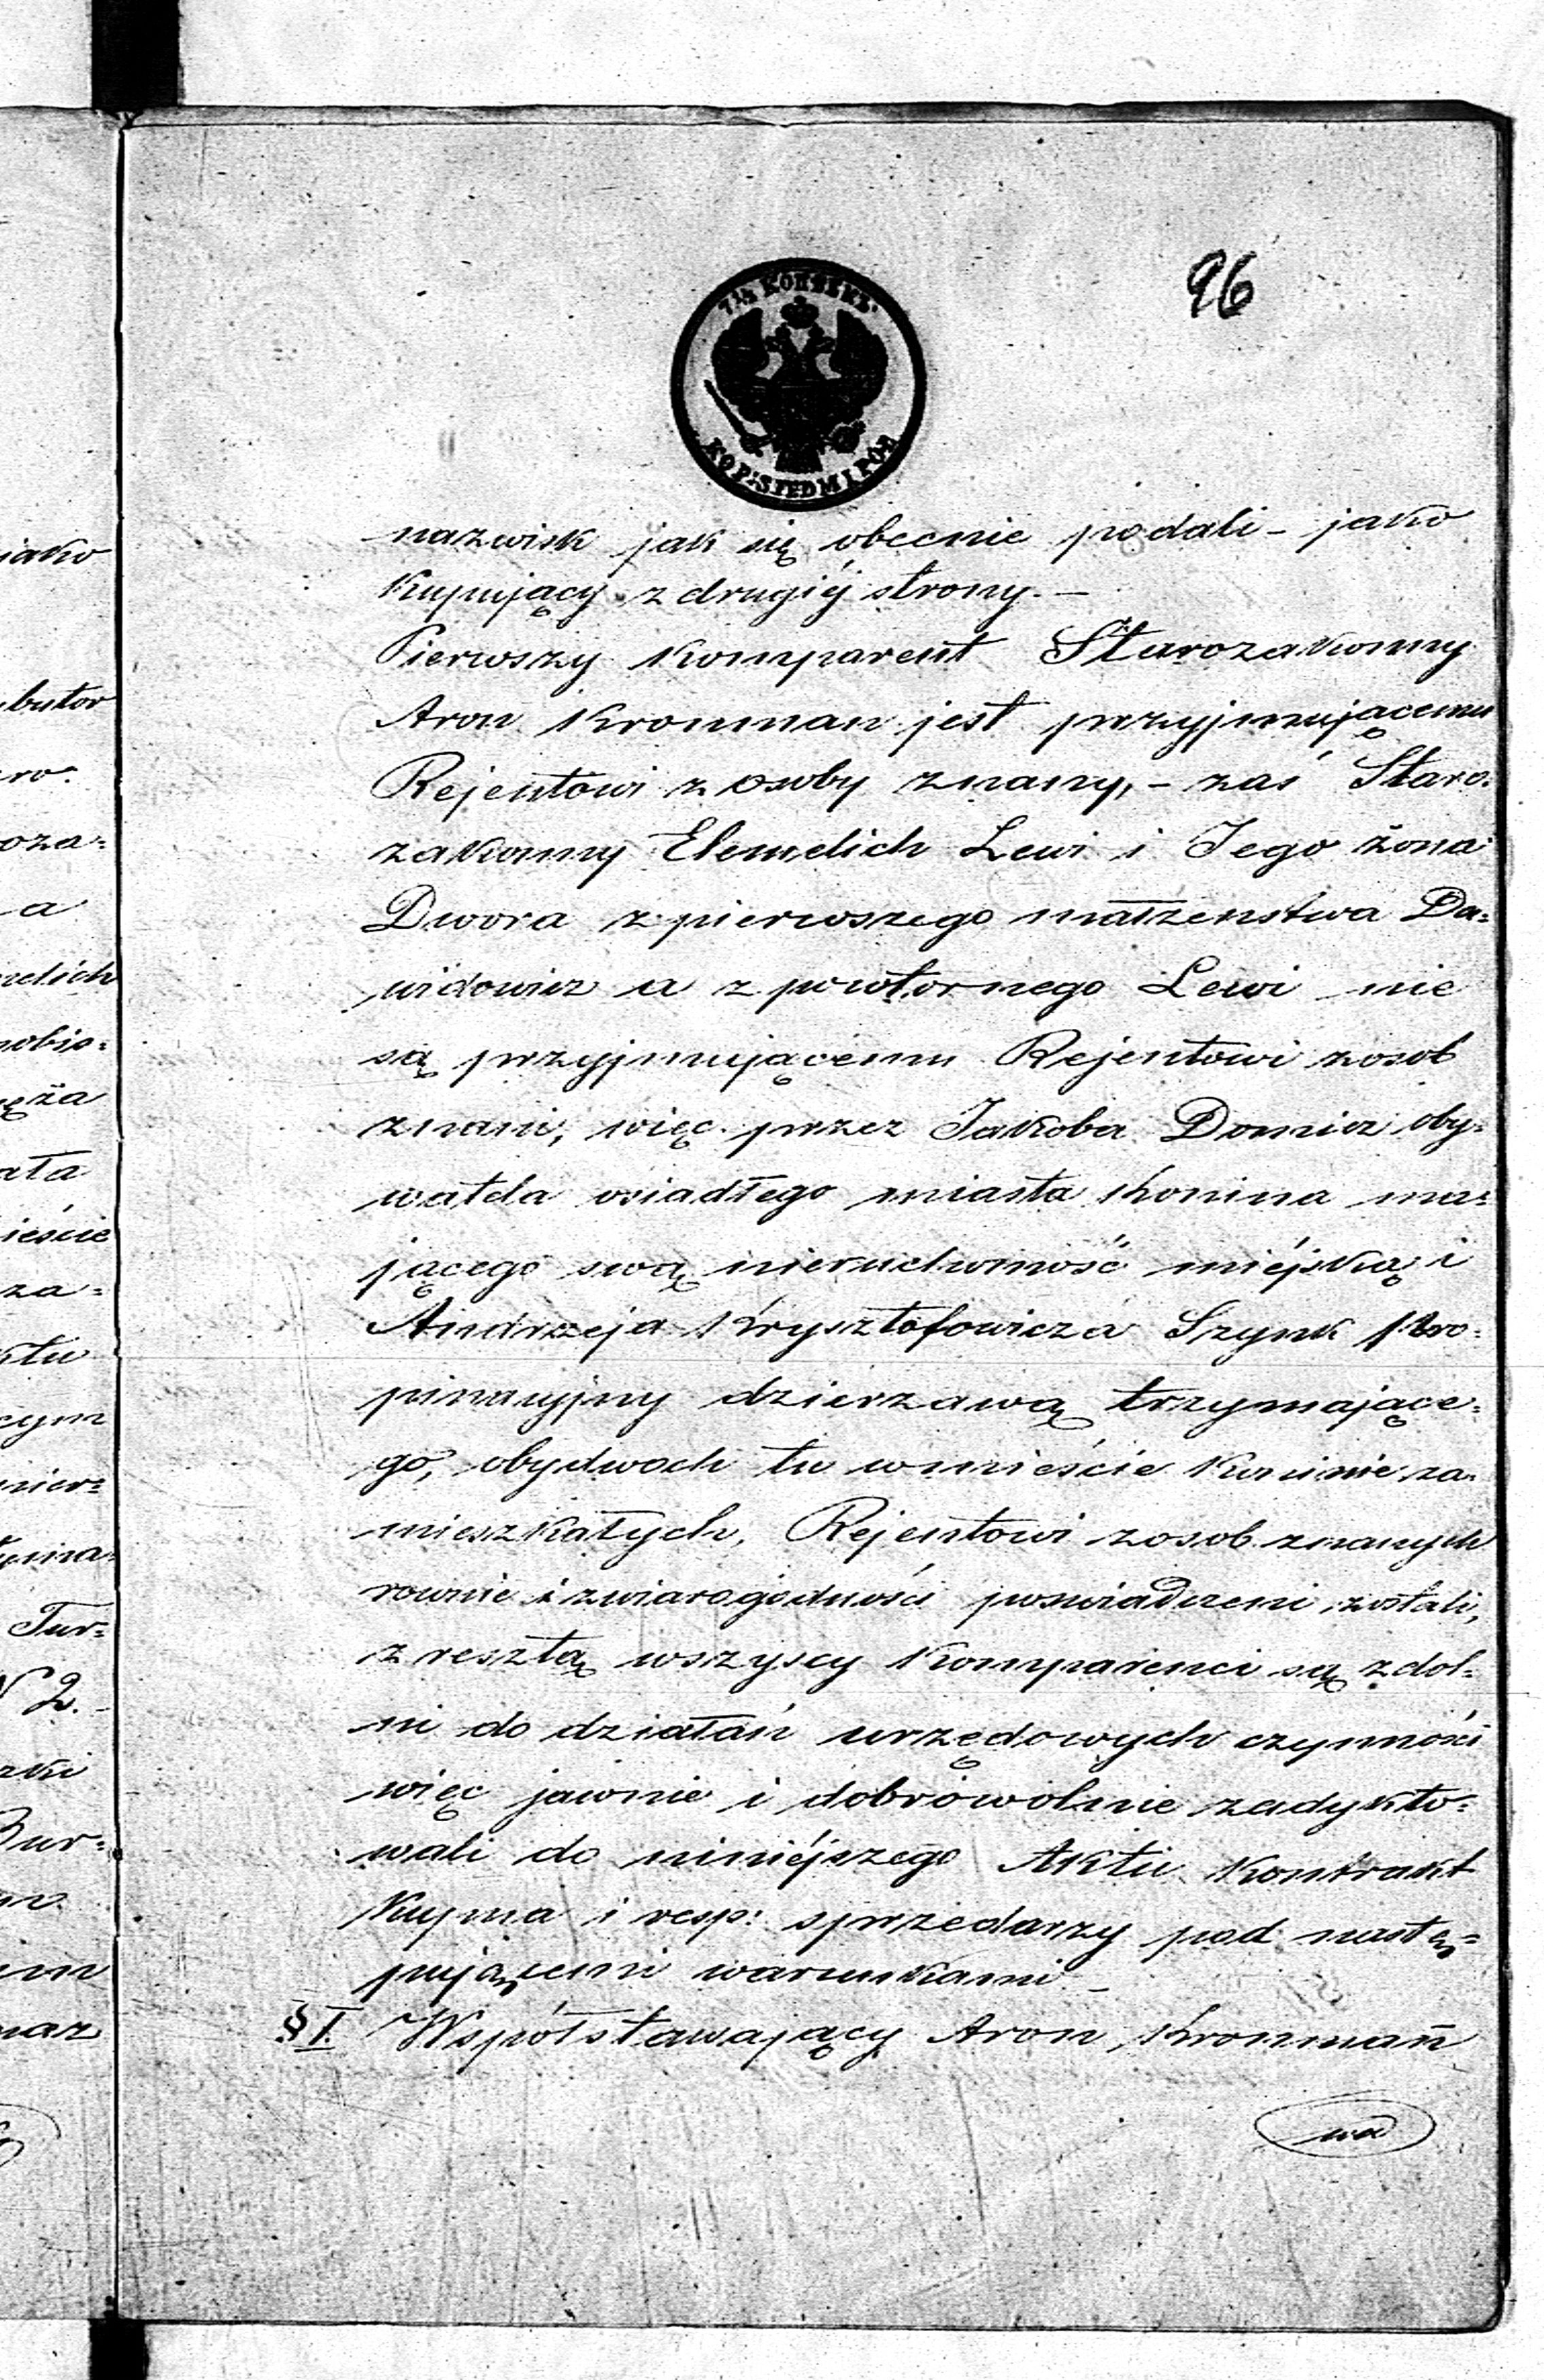 96
7½ КОПѢЕКЪ.
KOP: SIEDM I PÓŁ
nazwisk jak się obecnie podali – jako
Kupujący z drugiéj strony. –
Pierwszy Komparent Starozakonny
Aron Kronman jest przyjmującemu
Rejentowi z osoby znany, – zaś Staro:
zakonny Elemelich Lewi i Jego żona
Dwora z pierwszego małżenstwa Da:
widowicz a z powtornego Lewi nie
są przyjmującemu Rejentowi z osob
znani, więc przez Jakoba Domicz oby:
watela osiadłego miasta Konina ma:
jącego swą nieruchomość miéjską i
Andrzeja Krysztofowicza Szynk pro:
pinacyjny dzierzawą trzymające:
go, obydwoch tu w mieście Koninie za:
mieszkałych, Rejentowi z osob znanych
rownie i z wiarogodności poswiadczeni zostali,
z resztą wszyscy Komparenci są zdol:
ni do działań urzędowych czynności
więc jawnie i dobrowolnie zadykto:
wali do niniéjszego Aktu Kontrakt
Kupna i resp: sprzedarzy pod nastę:
pującemi warunkami –
§ I. Współstawający Aron Kronman
iako
butor
ro.
oza:
a
elich
obis:
ęża
ała
ieście
za:
ktu
cym
nier:
Tur:
N 2.
zki
Bur: